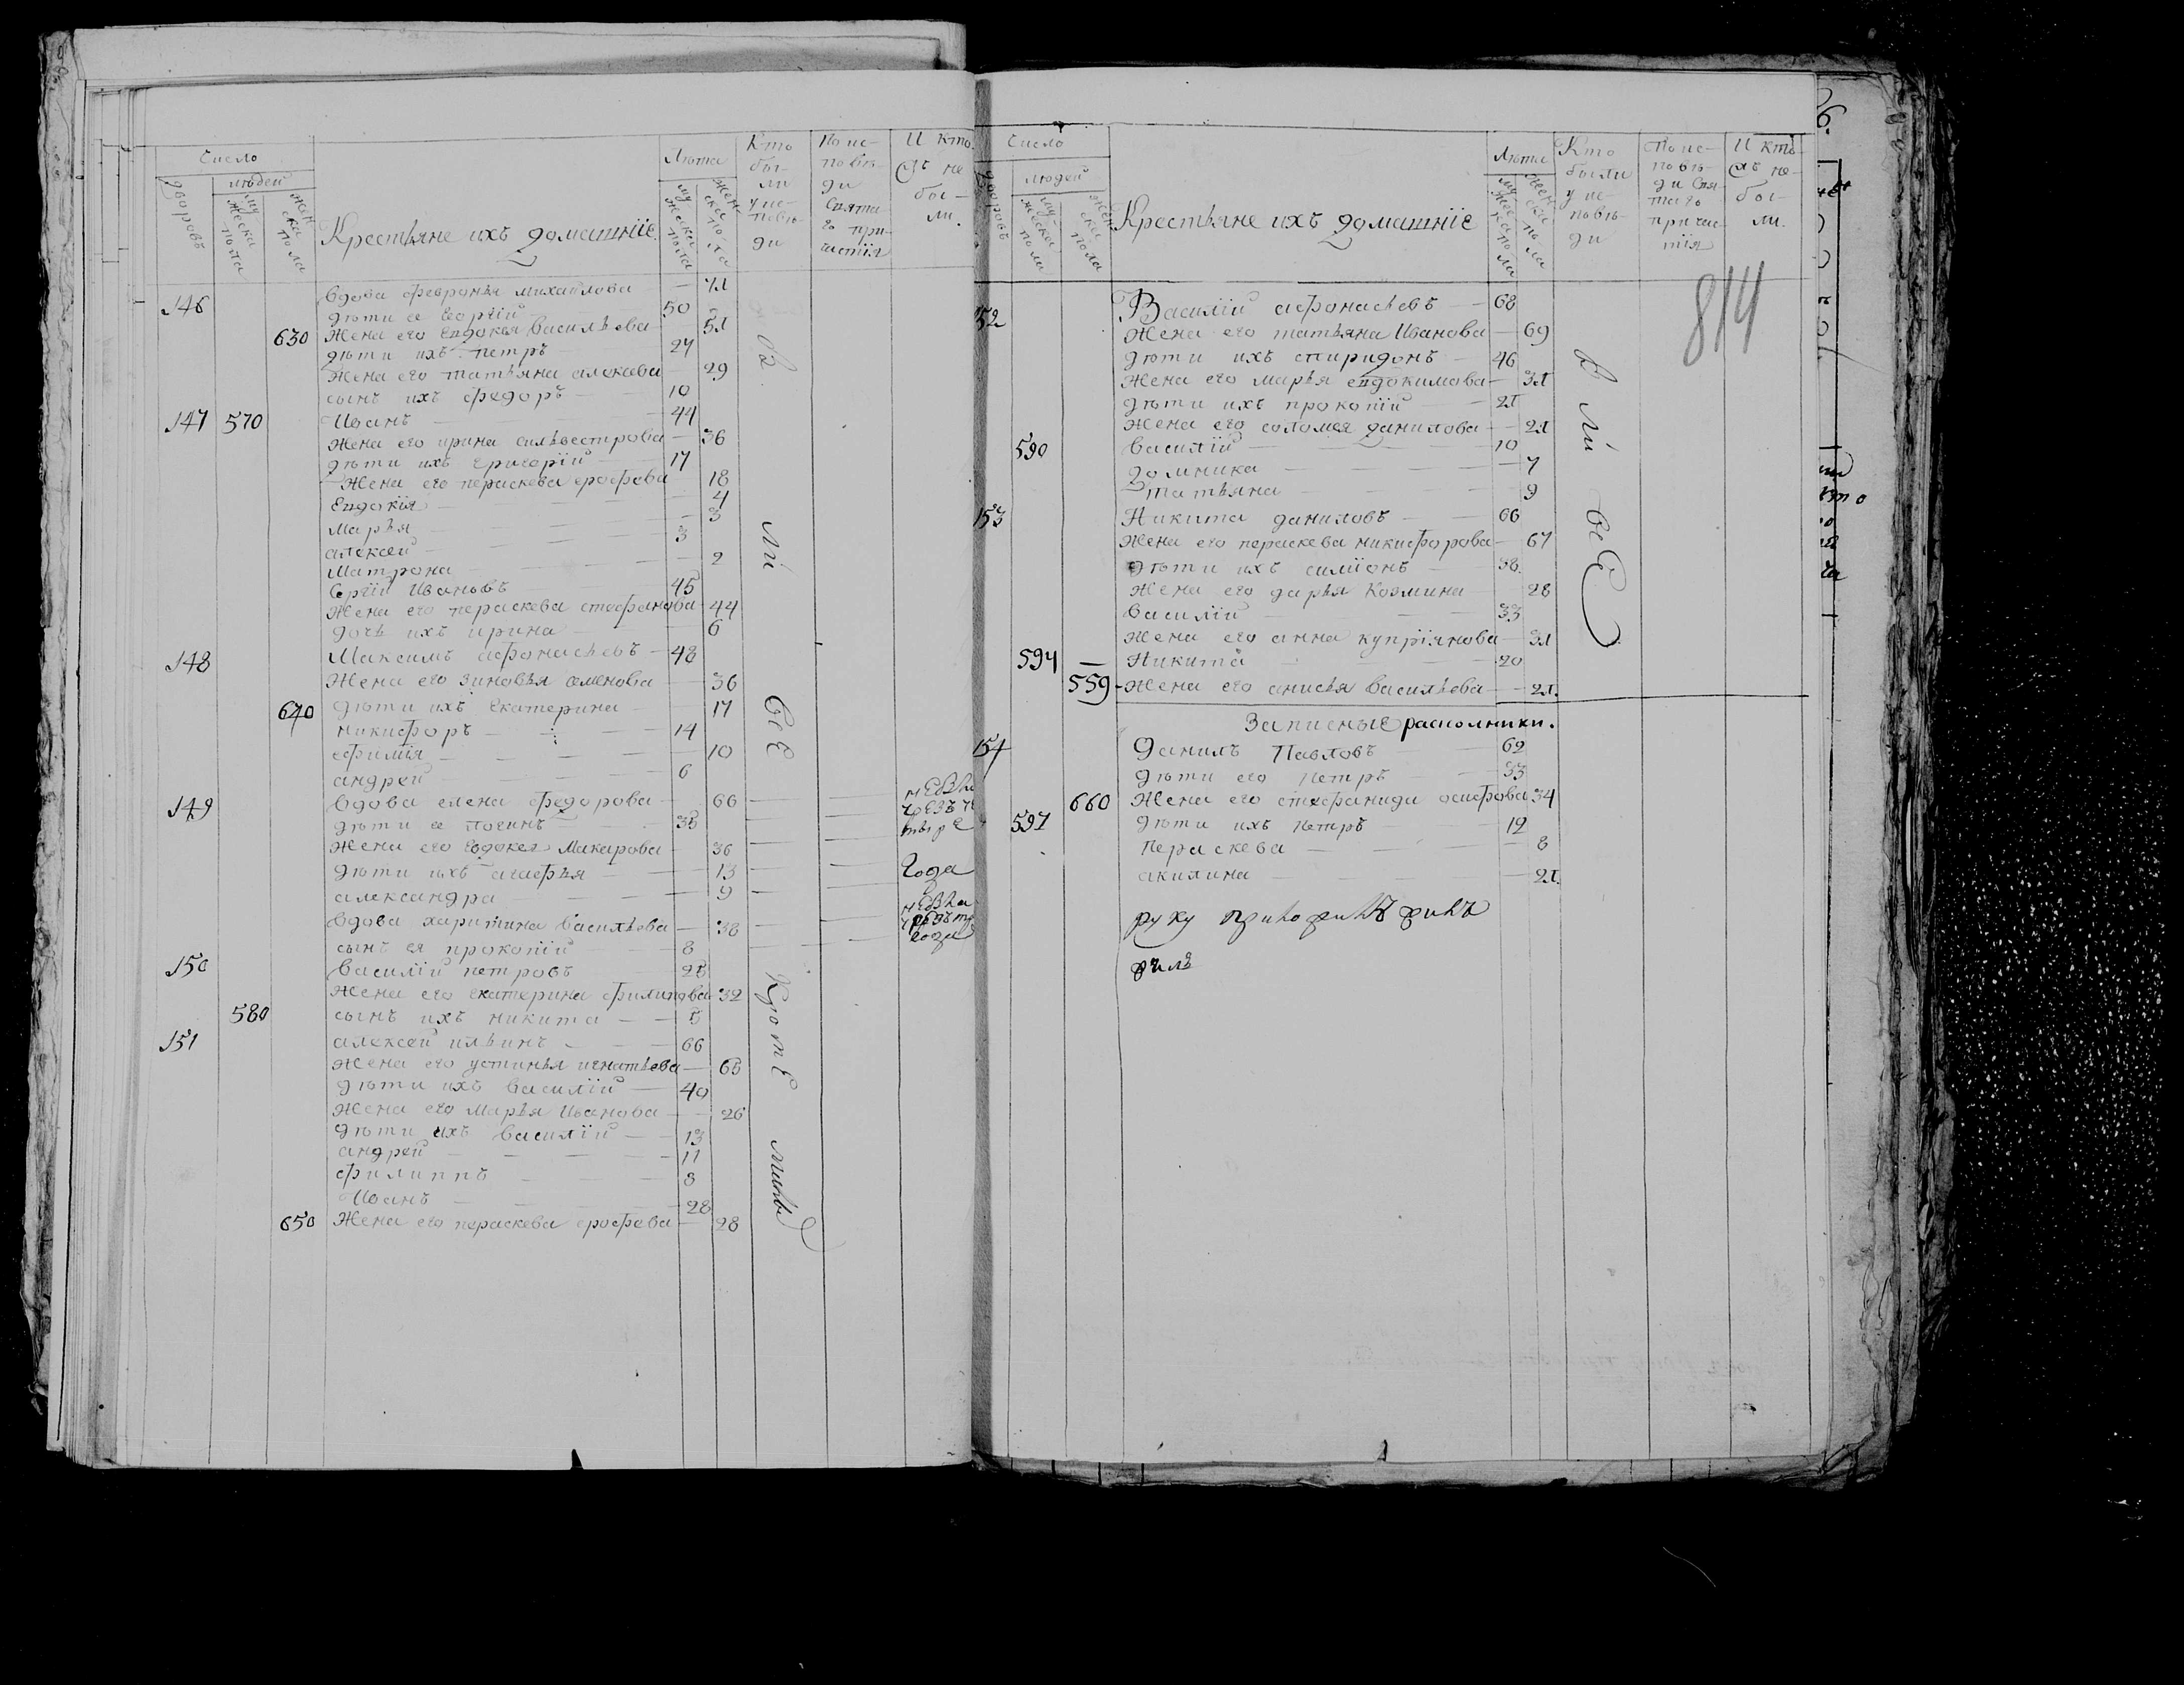 Число
людей
дворовъ
мужеска пола
женска пола
Крестьяне ихъ домашнїе
Лѣта
мужеска пола
женска пола
Кто были у исповѣди
По исповѣди Святаго причастїя
И кто
не были.
146
вдова февронья михаилова — 71
дѣти ее Георгїй 50
630 Жена его Евдокея васильева 51
дѣти ихъ петръ 27
жена его татьяна алексева 29
сынъ ихъ федоръ — 10
147 570 Иванъ — 44
жена его ирина сильвестрова — 36
дѣти ихъ григорїй — 17
Жена его пераскева ерофева 18
Евдокїя — 4
марья — 3
алексей — 3
матрона — 2
Сергїй Ивановъ 45
жена его пераскева стефанова 44
дочь ихъ ирина — 6
148 Максимъ афонасьевъ — 48
жена его зиновья семенова — 36
640 дѣти ихъ Екатерина — 17
никифоръ — 14
ефимїя — 10
андрей — 6
149 вдова елена федорова — 66
дѣти ее логинъ — 38
жена его Евдокея макарова — 36
дѣти ихъ агафья — 13
александра — 9
года
вдова харитина васильева — 38
сынъ ея прокопїй — 8
года
150 василїй петровъ — 28
жена его екатерина филипова 32
580 сынъ ихъ никита — 5
151 алексей ильинъ — 66
жена его устинья игнатьева — 65
дѣти ихъ василїй — 40
жена его марья Иванова — 26
дѣти ихъ василїй — 13
андрей — 11
филиппъ — 8
Иванъ — 28
650 Жена его пераскева ерофева — 28
бы
ли
всЕ
КромЕ
Число
людей
дворовъ
мужеска пола
женска пола
Крестьяне ихъ домашнїе
Лѣта
мужеска пола
женска пола
Кто были у исповѣди
По исповѣди Святаго причастїя
И кто
не были.
814
152 Василїй афонасьевъ — 68
жена его татьяна Иванова — 69
дѣти ихъ спиридонъ — 46
Жена его марья евдокимова — 31
дѣти ихъ прокопїй — 21
жена его соломея данилова — 21
590 василїй — 10
домника — 7
татьяна — 9
153 Никита даниловъ — 66
жена его пераскева никифорова — 67
дѣти ихъ симїонъ — 38
жена его дарья козмина — 28
василїй — 33
жена его анна купрїянова — 31
594 — Никита — 20
559 - жена его анисья васильева — 21.
ли
всЕ
Записные раскольники.
154 Данилъ Павловъ — 62
дѣти его петръ — 33
660 жена его стефанида осифова 34
597 дѣти ихъ петръ — 12
пераскева — 8
акилина — 21.
руку